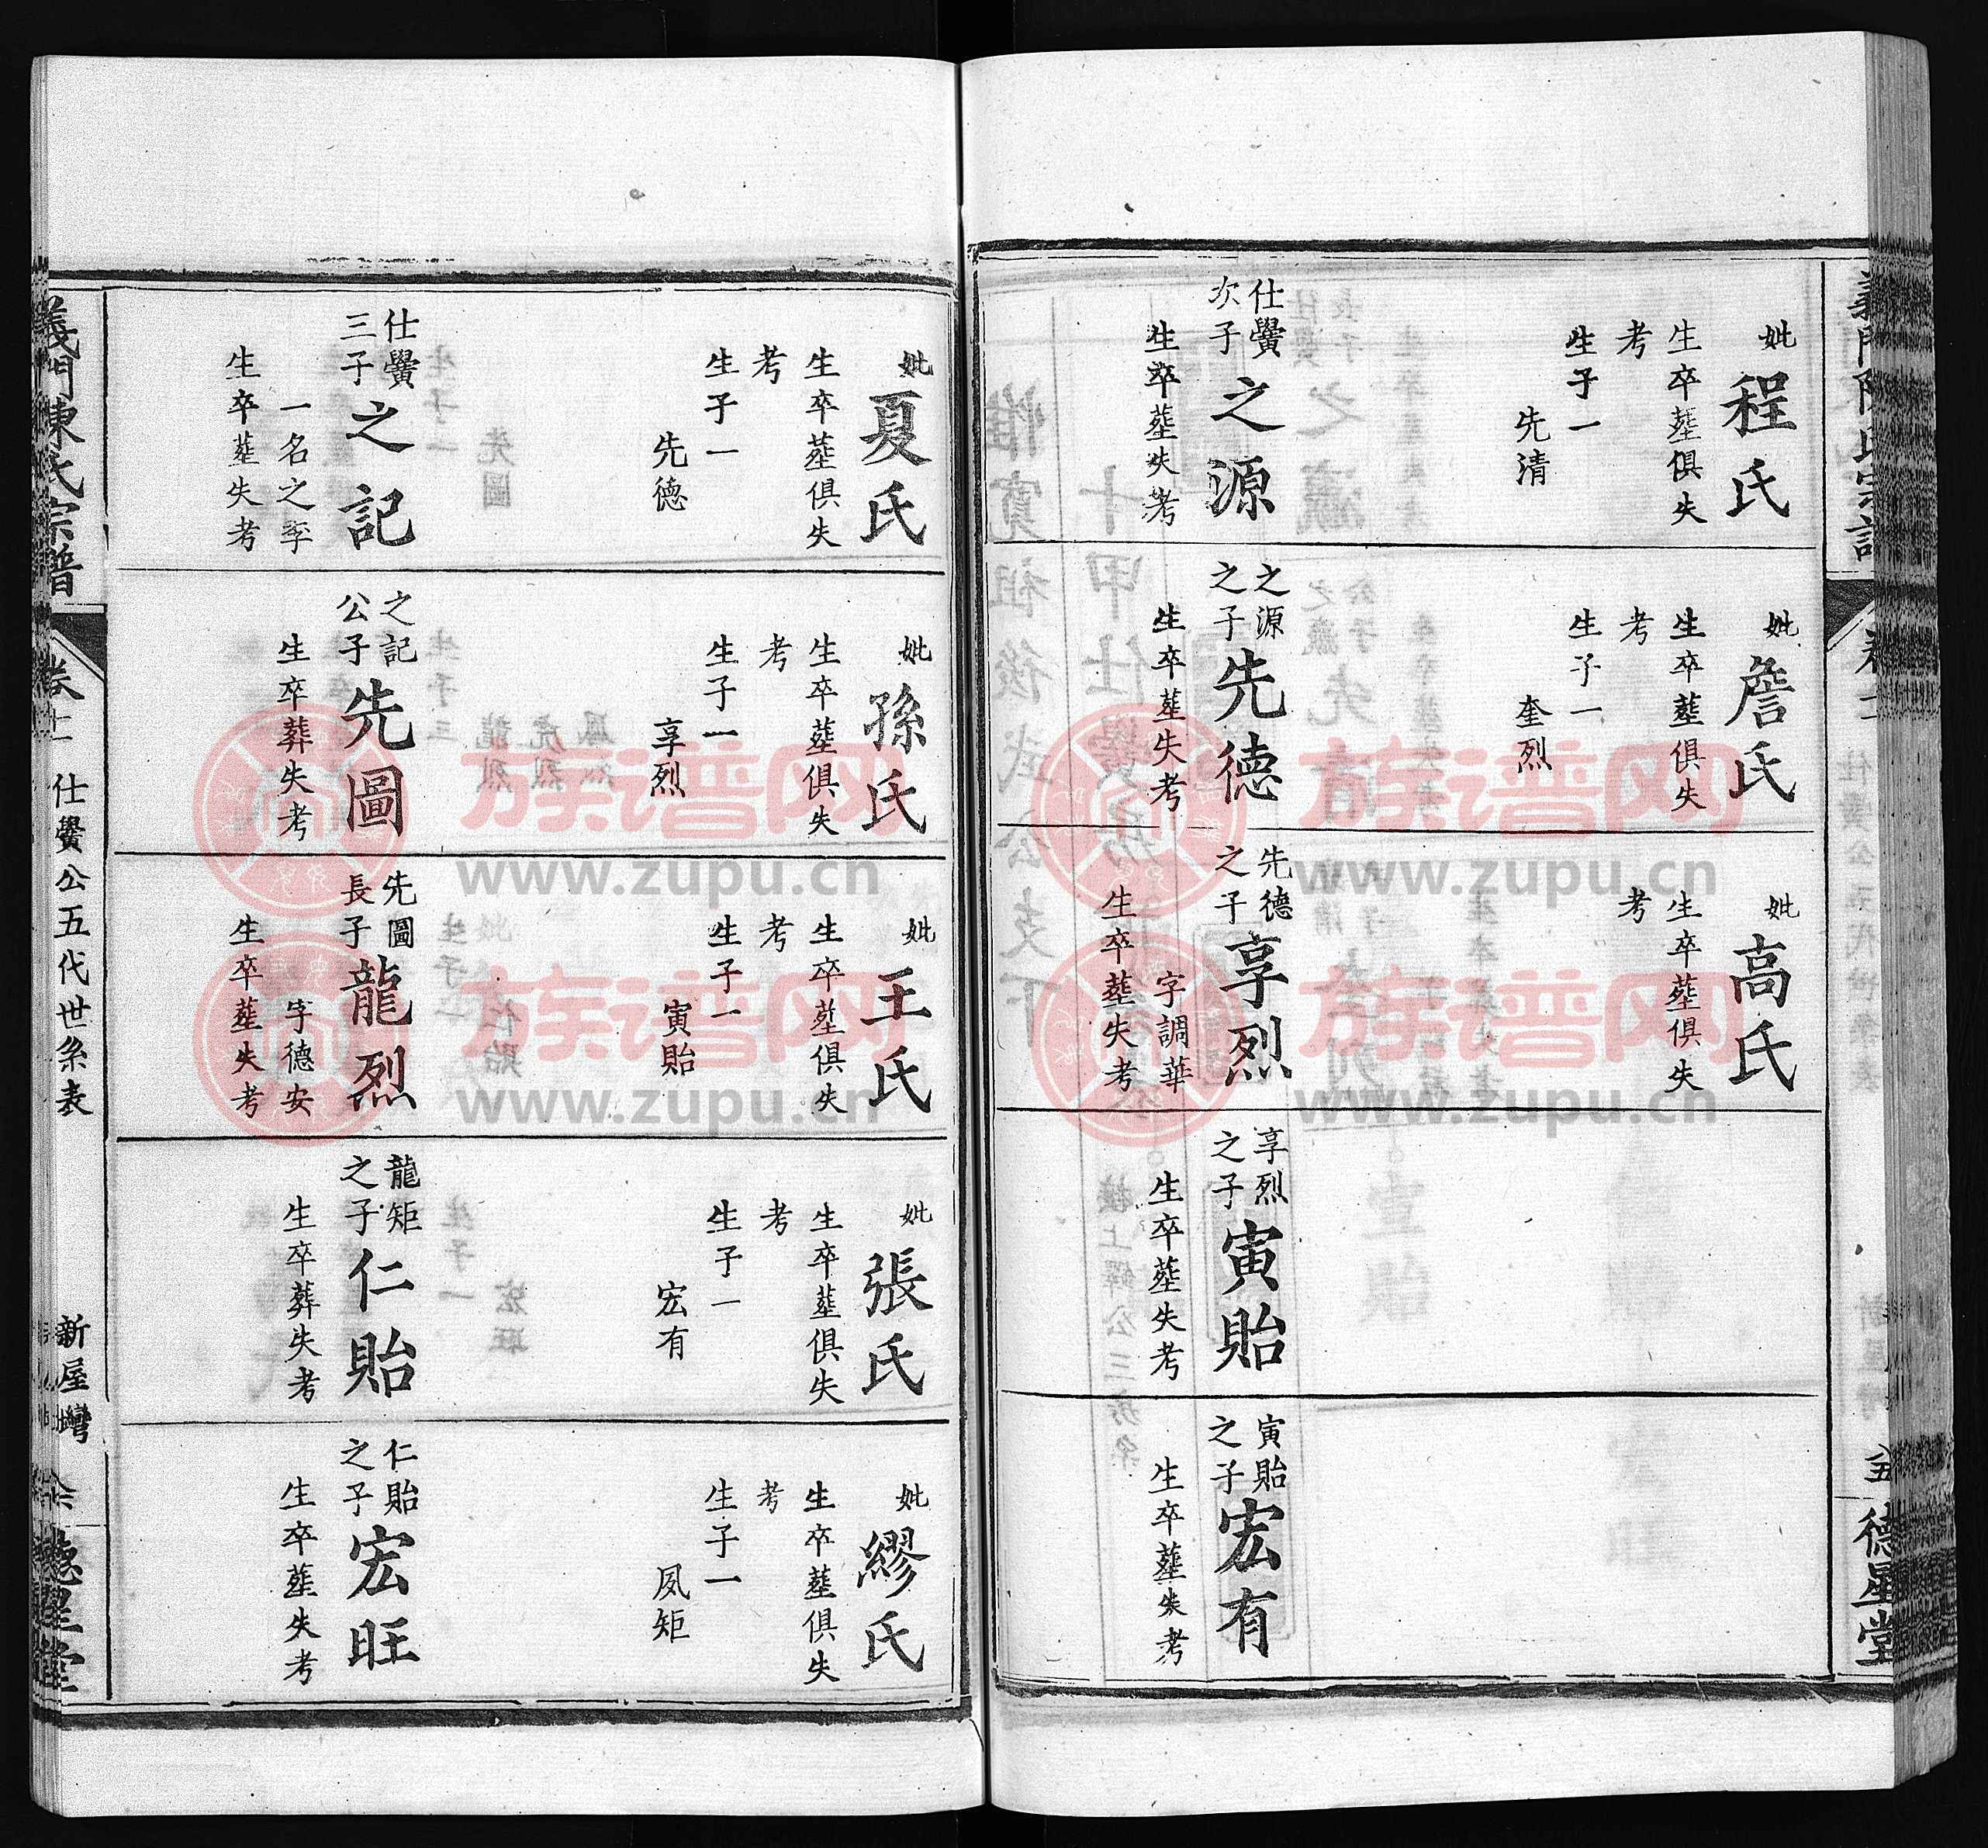 義門陳氏宗譜
卷十一
仕黌公五代世系表
新屋灣
五
德星堂
妣程氏
生卒塟俱失
考
生子一
先清
仕黌
次子
之源
生卒塟失考
妣詹氏
生卒塟俱失
考
生子一
奎烈
之源
之子
先德
生卒塟失考
妣高氏
生卒塟俱失
考
先德
之子
享烈
字調華
生卒塟失考
享烈
之子
寅貽
生卒塟失考
寅貽
之子
宏有
生卒塟失考
妣夏氏
生卒塟俱失
考
生子一
先德
仕黌
三子
之記
一名之季
生卒塟失考
妣孫氏
生卒塟俱失
考
生子一
享烈
之記
公子
先圖
生卒葬失考
妣王氏
生卒塟俱失
考
生子一
寅貽
先圖
長子
龍烈
字德安
生卒塟失考
妣張氏
生卒塟俱失
考
生子一
宏有
龍矩
之子
仁貽
生卒葬失考
妣繆氏
生卒塟俱失
考
生子一
夙矩
仁貽
之子
宏旺
生卒塟失考
義門陳氏宗譜
卷十一
仕黌公五代世系表
新屋灣
六
德星堂
族谱网
www.zupu.cn
族谱网
www.zupu.cn
族谱网
www.zupu.cn
族谱网
www.zupu.cn